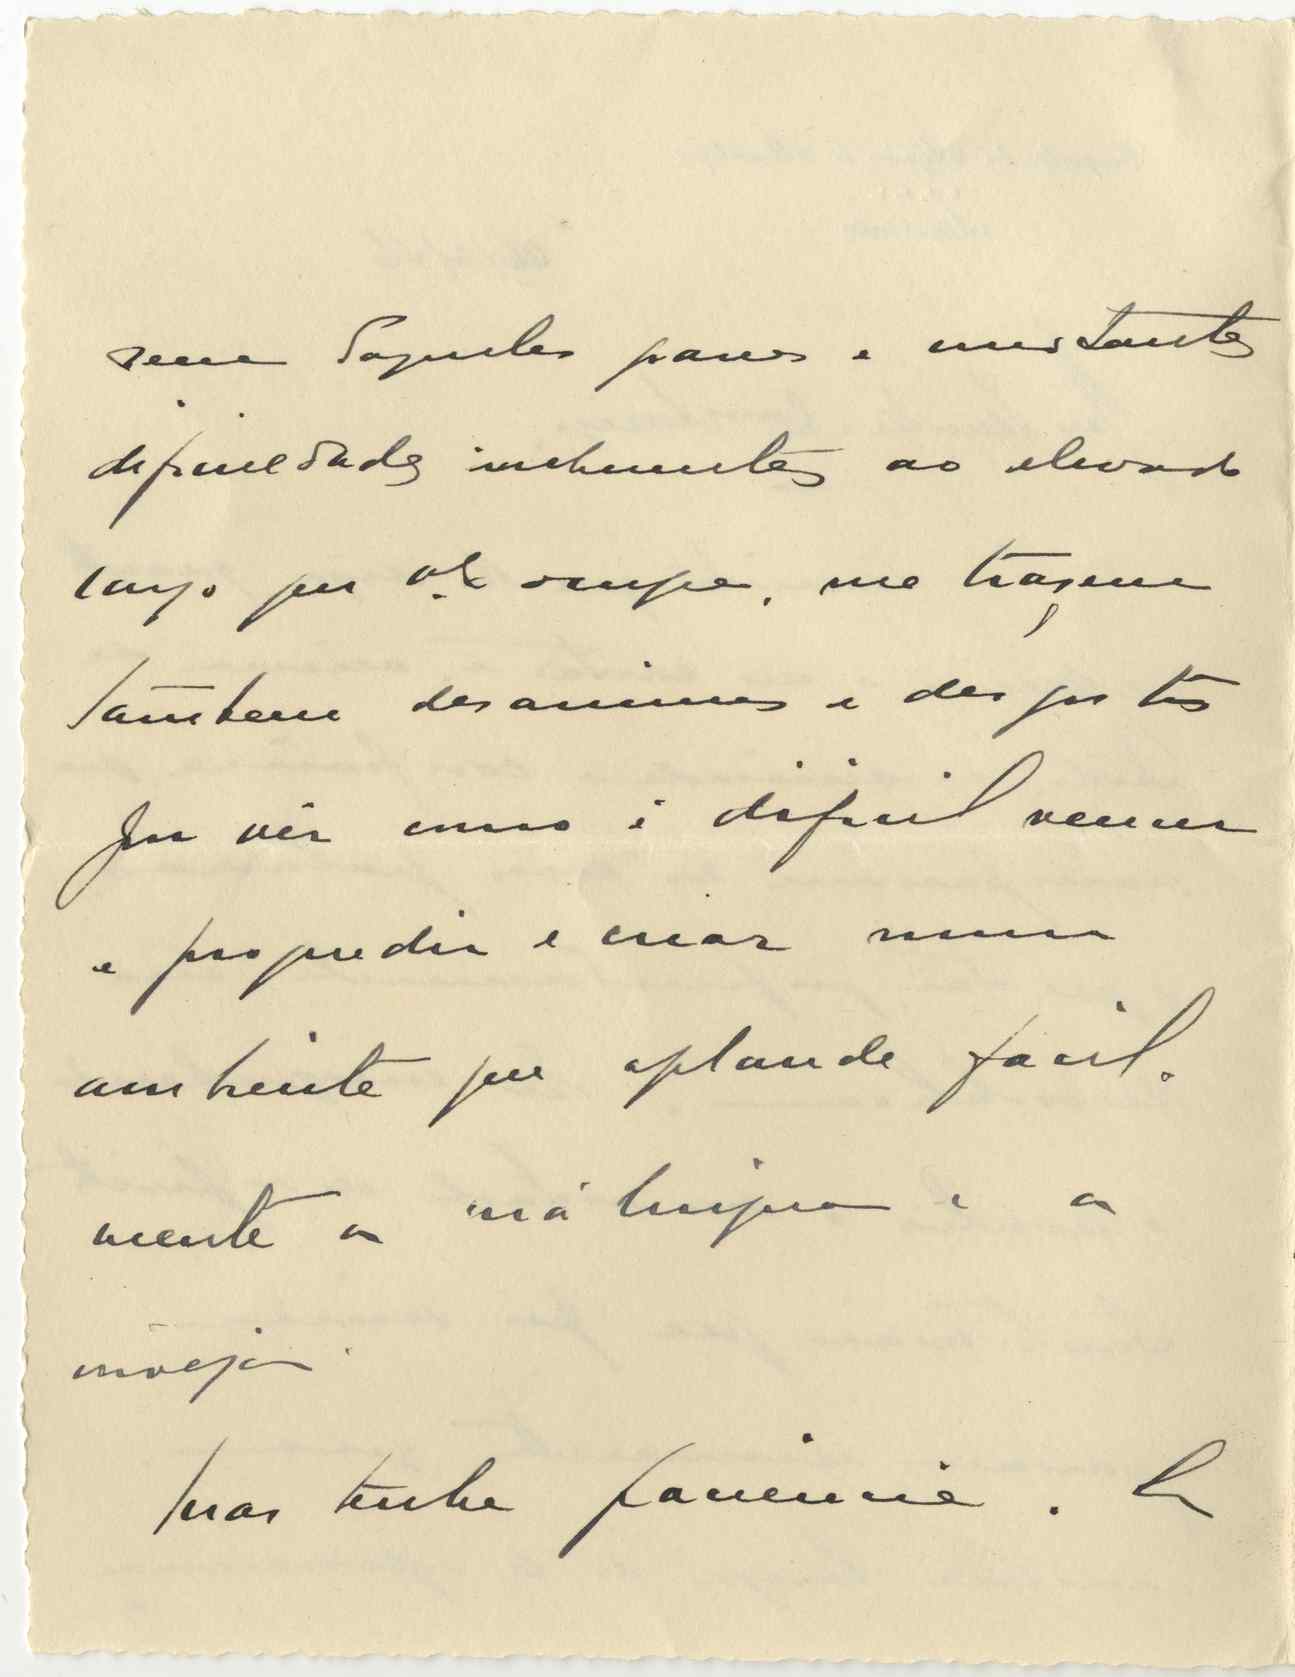 e constantes
dificuldades inherentes ao elevado
cargo que V. Ex ocupa, me trazem
tambem desanimos e desgostos
por vêr como é dificil vencer
e progredir e criar num
ambiente que aplaude facil-
mente a má lingua e a
inveja.
Mas tenha paciencia.